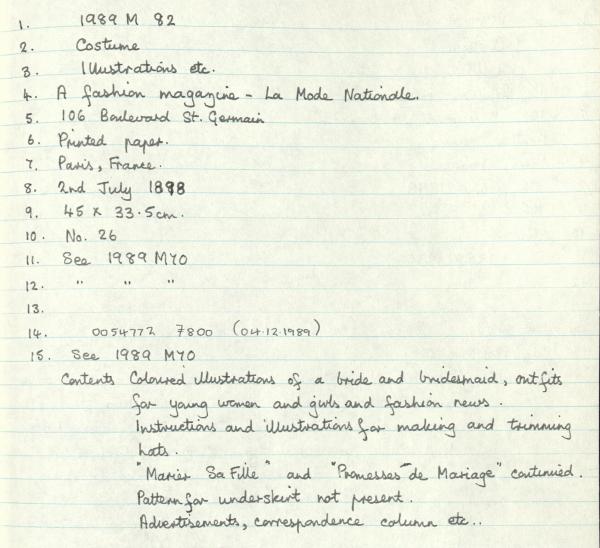 1. 1989 M 82
2. Costume
3. Illustrations etc.
4. A fashion magazine - La Mode Nationale.
5. 106 Boulevard St. Germain
6. Printed paper.
7. Paris, France.
8. 2nd July 1898
9. 45 x 33.5cm.
10. No. 26
11. See 1989 M70
12. " " "
13.
14. 0054772 7800 (04.12.1989)
15. See 1989 M70
Contents Coloured illustrations of a bride and bridesmaid, outfits
for young women and girls and fashion news.
Instructions and illustrations for making and trimming
hats.
"Marier Sa Fille" and "Promesses de Mariage" continued.
Pattern for underskirt not present.
Advertisements, correspondence column etc..